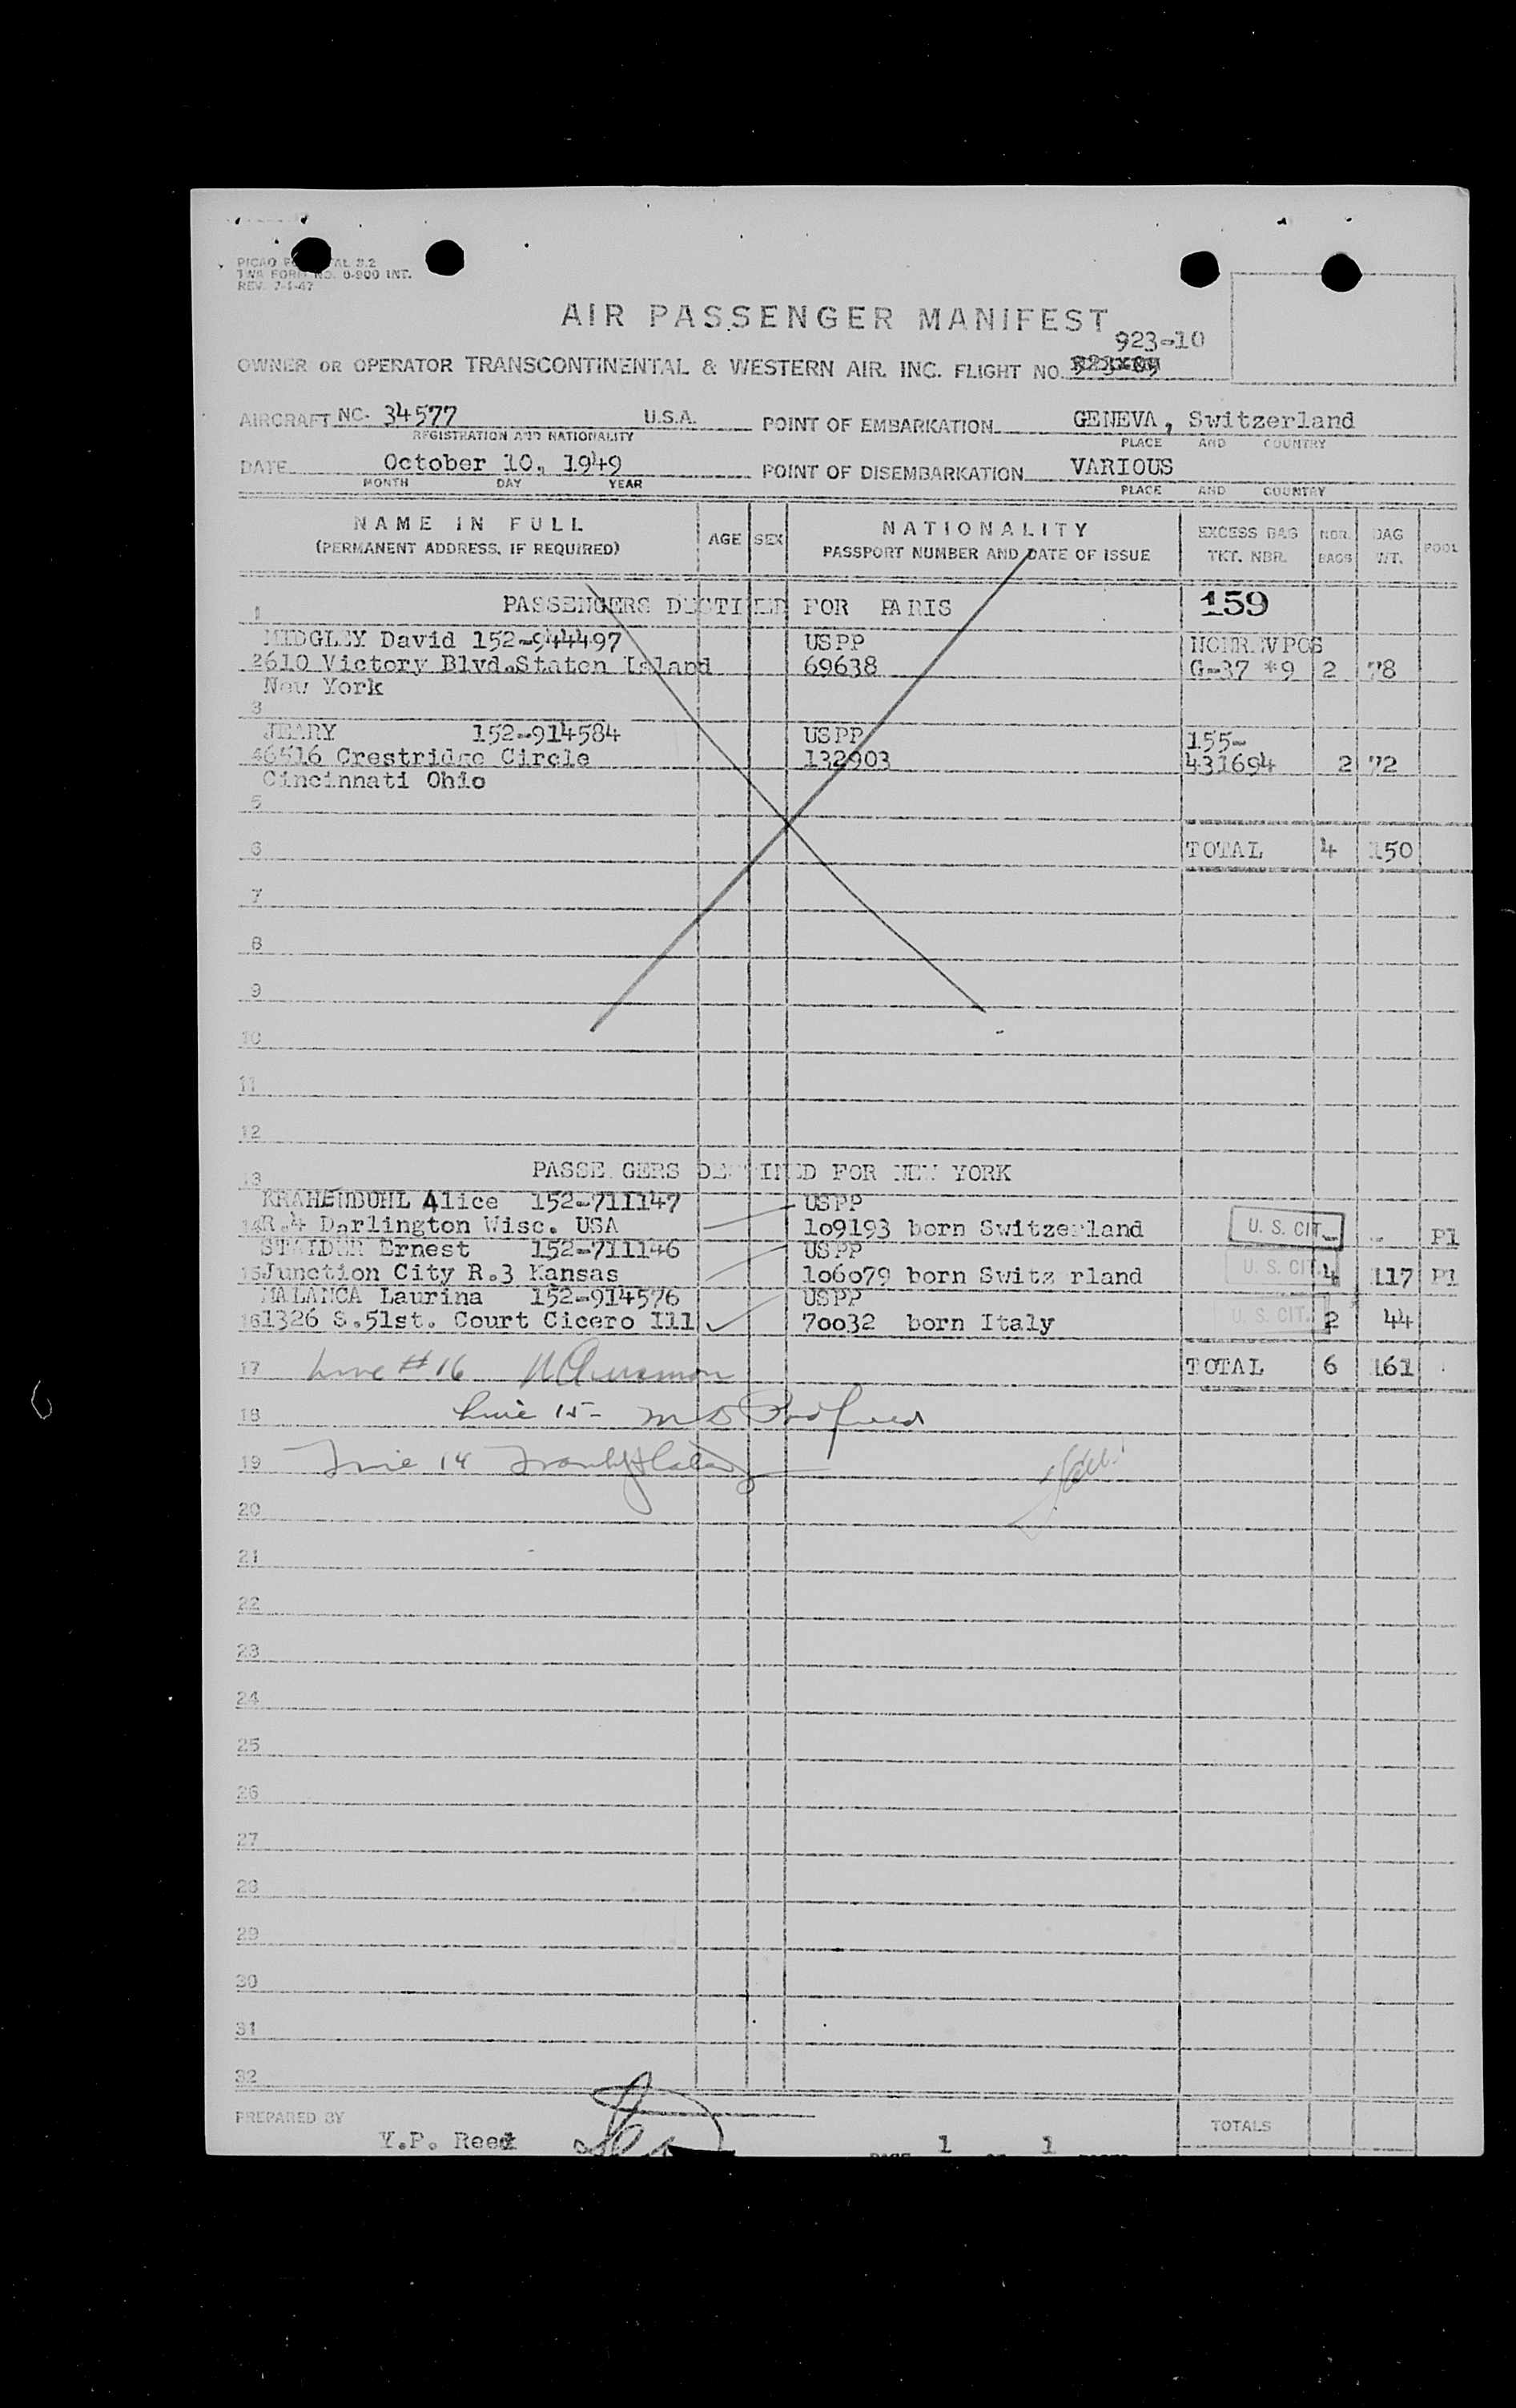 PICAO
TWA FORM NO. 0-900 INT.
REV. 7-1-47
AIR PASSENGER MANIFEST
923-10
OWNER OR OPERATOR TRANSCONTINENTAL & WESTERN AIR. INC. FLIGHT NO.
AIRCRAFT NC. 34577 U.S.A. POINT OF EMBARKATION GENEVA, Switzerland
REGISTRATION AND NATIONALITY PLACE AND COUNTRY
DATE October 10, 1949 POINT OF DISEMBARKATION VARIOUS
MONTH DAY YEAR PLACE AND COUNTRY
NAME IN FULL AGE SEX NATIONALITY EXCESS BAG NBR. BAG POOL
(PERMANENT ADDRESS, IF REQUIRED) PASSPORT NUMBER AND DATE OF ISSUE TKT. NBR. BAGS WT.
1 PASSENGERS DESTINED FOR PARIS 159
MIDGLEY David 152-944497 USPP
2 610 Victory Blvd.Staten Island 69638 G-37 *9 2 78
New York
3
JEARY 152-914584 USPP 155-
4 6516 Crestridge Circle 132903 431694 2 72
Cincinnati Ohio
5
6 TOTAL 4 150
7
8
9
10
11
12
13 PASSENGERS DESTINED FOR NEW YORK
KRAHENBUHL Alice 152-711147 USPP
14 R.4 Darlington Wisc. USA 109193 born Switzerland U. S. CIT. - - Pl
STAIDER Ernest 152-711146 USPP
15 Junction City R.3 Kansas 106079 born Switz rland U. S. CIT. 4 117 Pl
MALANCA Laurina 152-914576 USPP
16 1326 S.51st. Court Cicero Ill 70032 born Italy U. S. CIT. 2 44
17 Line #16 TOTAL 6 161
18 Line 15-
19 Line 14
20
21
22
23
24
25
26
27
28
29
30
31
32
PREPARED BY TOTALS
Y.P. Reed 1 1